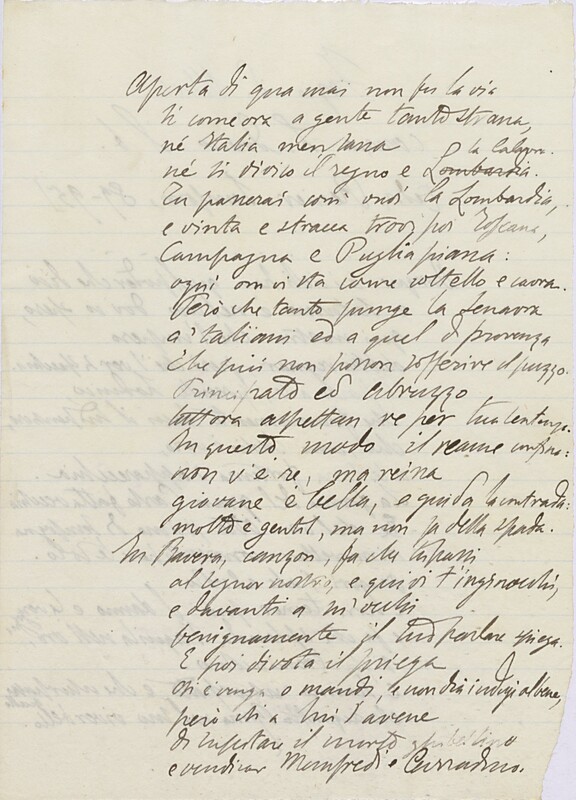 Aperta di qua mai non fu la via
sì come ora a gente tanto strana,
né Italia mezzana
né ti divieto il regno e Lombardia. la Calavr.
Tu passerai così ondi la Lombardia,
e vinta e stracca trovi poi Toscana,
Campagna e Puglia piana:
ogni om vi sta come coltello e caora.
Però che tanto punge la
a' taliani ed a quel di Provenza
che più non posson sofferire il puzzo.
Principato ed Abruzzo
tuttora aspettan re per tua
In questo modo il reame confina:
non v'è re, ma reina
giovane è bella, e guida la contrada:
molto è gentil, ma non ha della spada.
In Bavera, canzon, fa che tu passi
al signor nostro, e quivi t'inginocchi,
e davanti a su' occhi
benignamente il tuo parlare spiega.
E poi divota il priega
ch'e' venga o mandi, e non dia indugi al bene,
però ch'a lui s'avene
di suscitare il morto ghibellino
e vendicar Manfredi e Curradino.